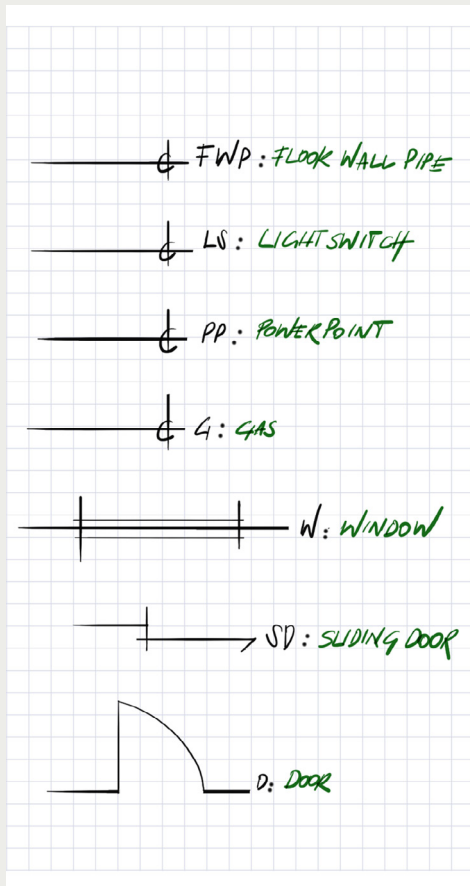 FWP: FLOOR WALL PIPE
LS: LIGHTSWITCH
PP: POWERPOINT
G: GAS
W: WINDOW
SD: SLIDING DOOR
D: DOOR